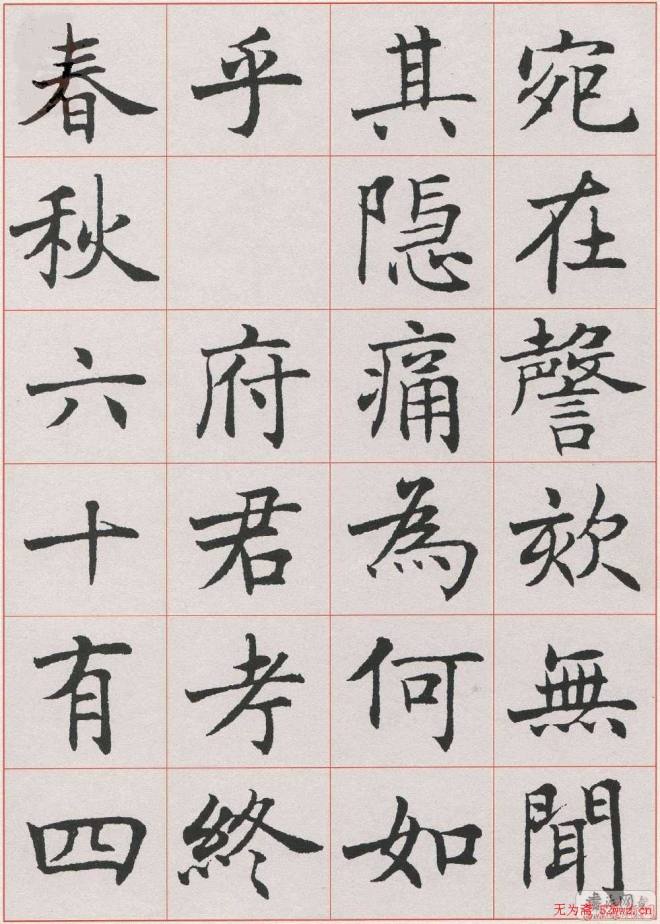 宛在謦欬無聞
其隱痛為何如
乎 府君考終
春秋六十有四
无为斋 52wwz.cn